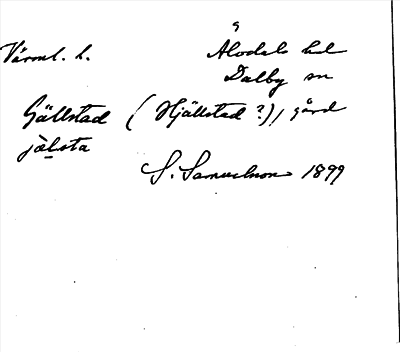 Värml. l. Älvdals hd
Dalby sn
Gällstad (Hjällstad ?), gård
jälsta
S. Samuelsson 1899